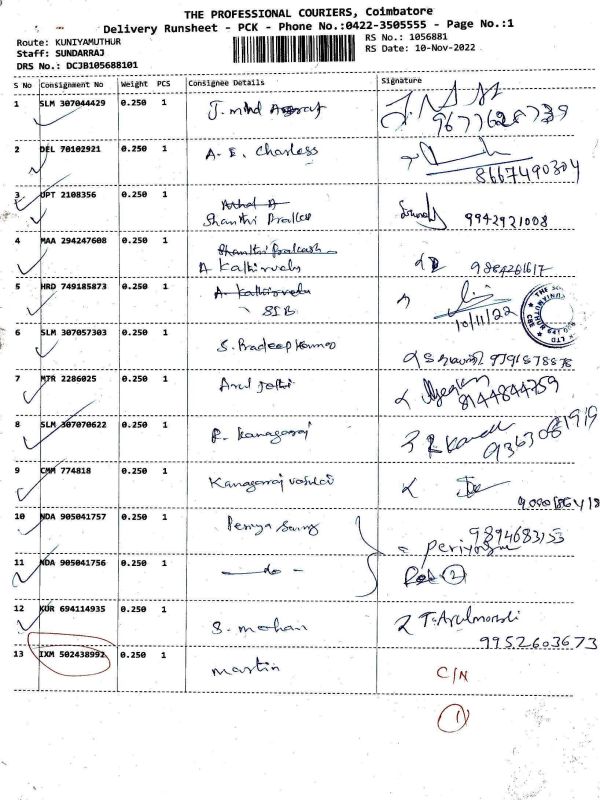 THE PROFESSIONAL COURIERS, Coimbatore
Delivery Runsheet - PCK - Phone No.:0422-3505555 - Page No.:1
Route: KUNIYAMUTHUR
RS No.: 1056881
Staff: SUNDARRAJ
RS Date: 10-Nov-2022
DRS No.: DCJB105688101
S No Consignment No Weight PCS Consignee Details Signature
1 SLM 307044429 0.250 1 J. mhd
2 DEL 70102921 0.250 1 A. E. Charless
8667490304
3 UPT 2108356 0.250 1
Shanthi 9942921008
4 MAA 294247608 0.250 1 Shanthi Prakash
A Kathirvelu
5 HRD 749185873 0.250 1 A. Kathirvelu
SIB 10/11/22
6 SLM 307057303 0.250 1
S. Pradeep Kumar
7 MTR 2286025 0.250 1 Arul Jothi 8144844759
8 SLM 307070622 0.250 1 R. Kanagaraj 9363081919
9 CMM 774818 0.250 1 Kanagaraj
10 NDA 905041757 0.250 1 Periya 9894683153
11 NDA 905041756 0.250 1 — do — (2)
12 KUR 694114935 0.250 1 S. mohan T. Arulmozhi
9952603673
13 IXM 502438992 0.250 1 martin C/N
(1)